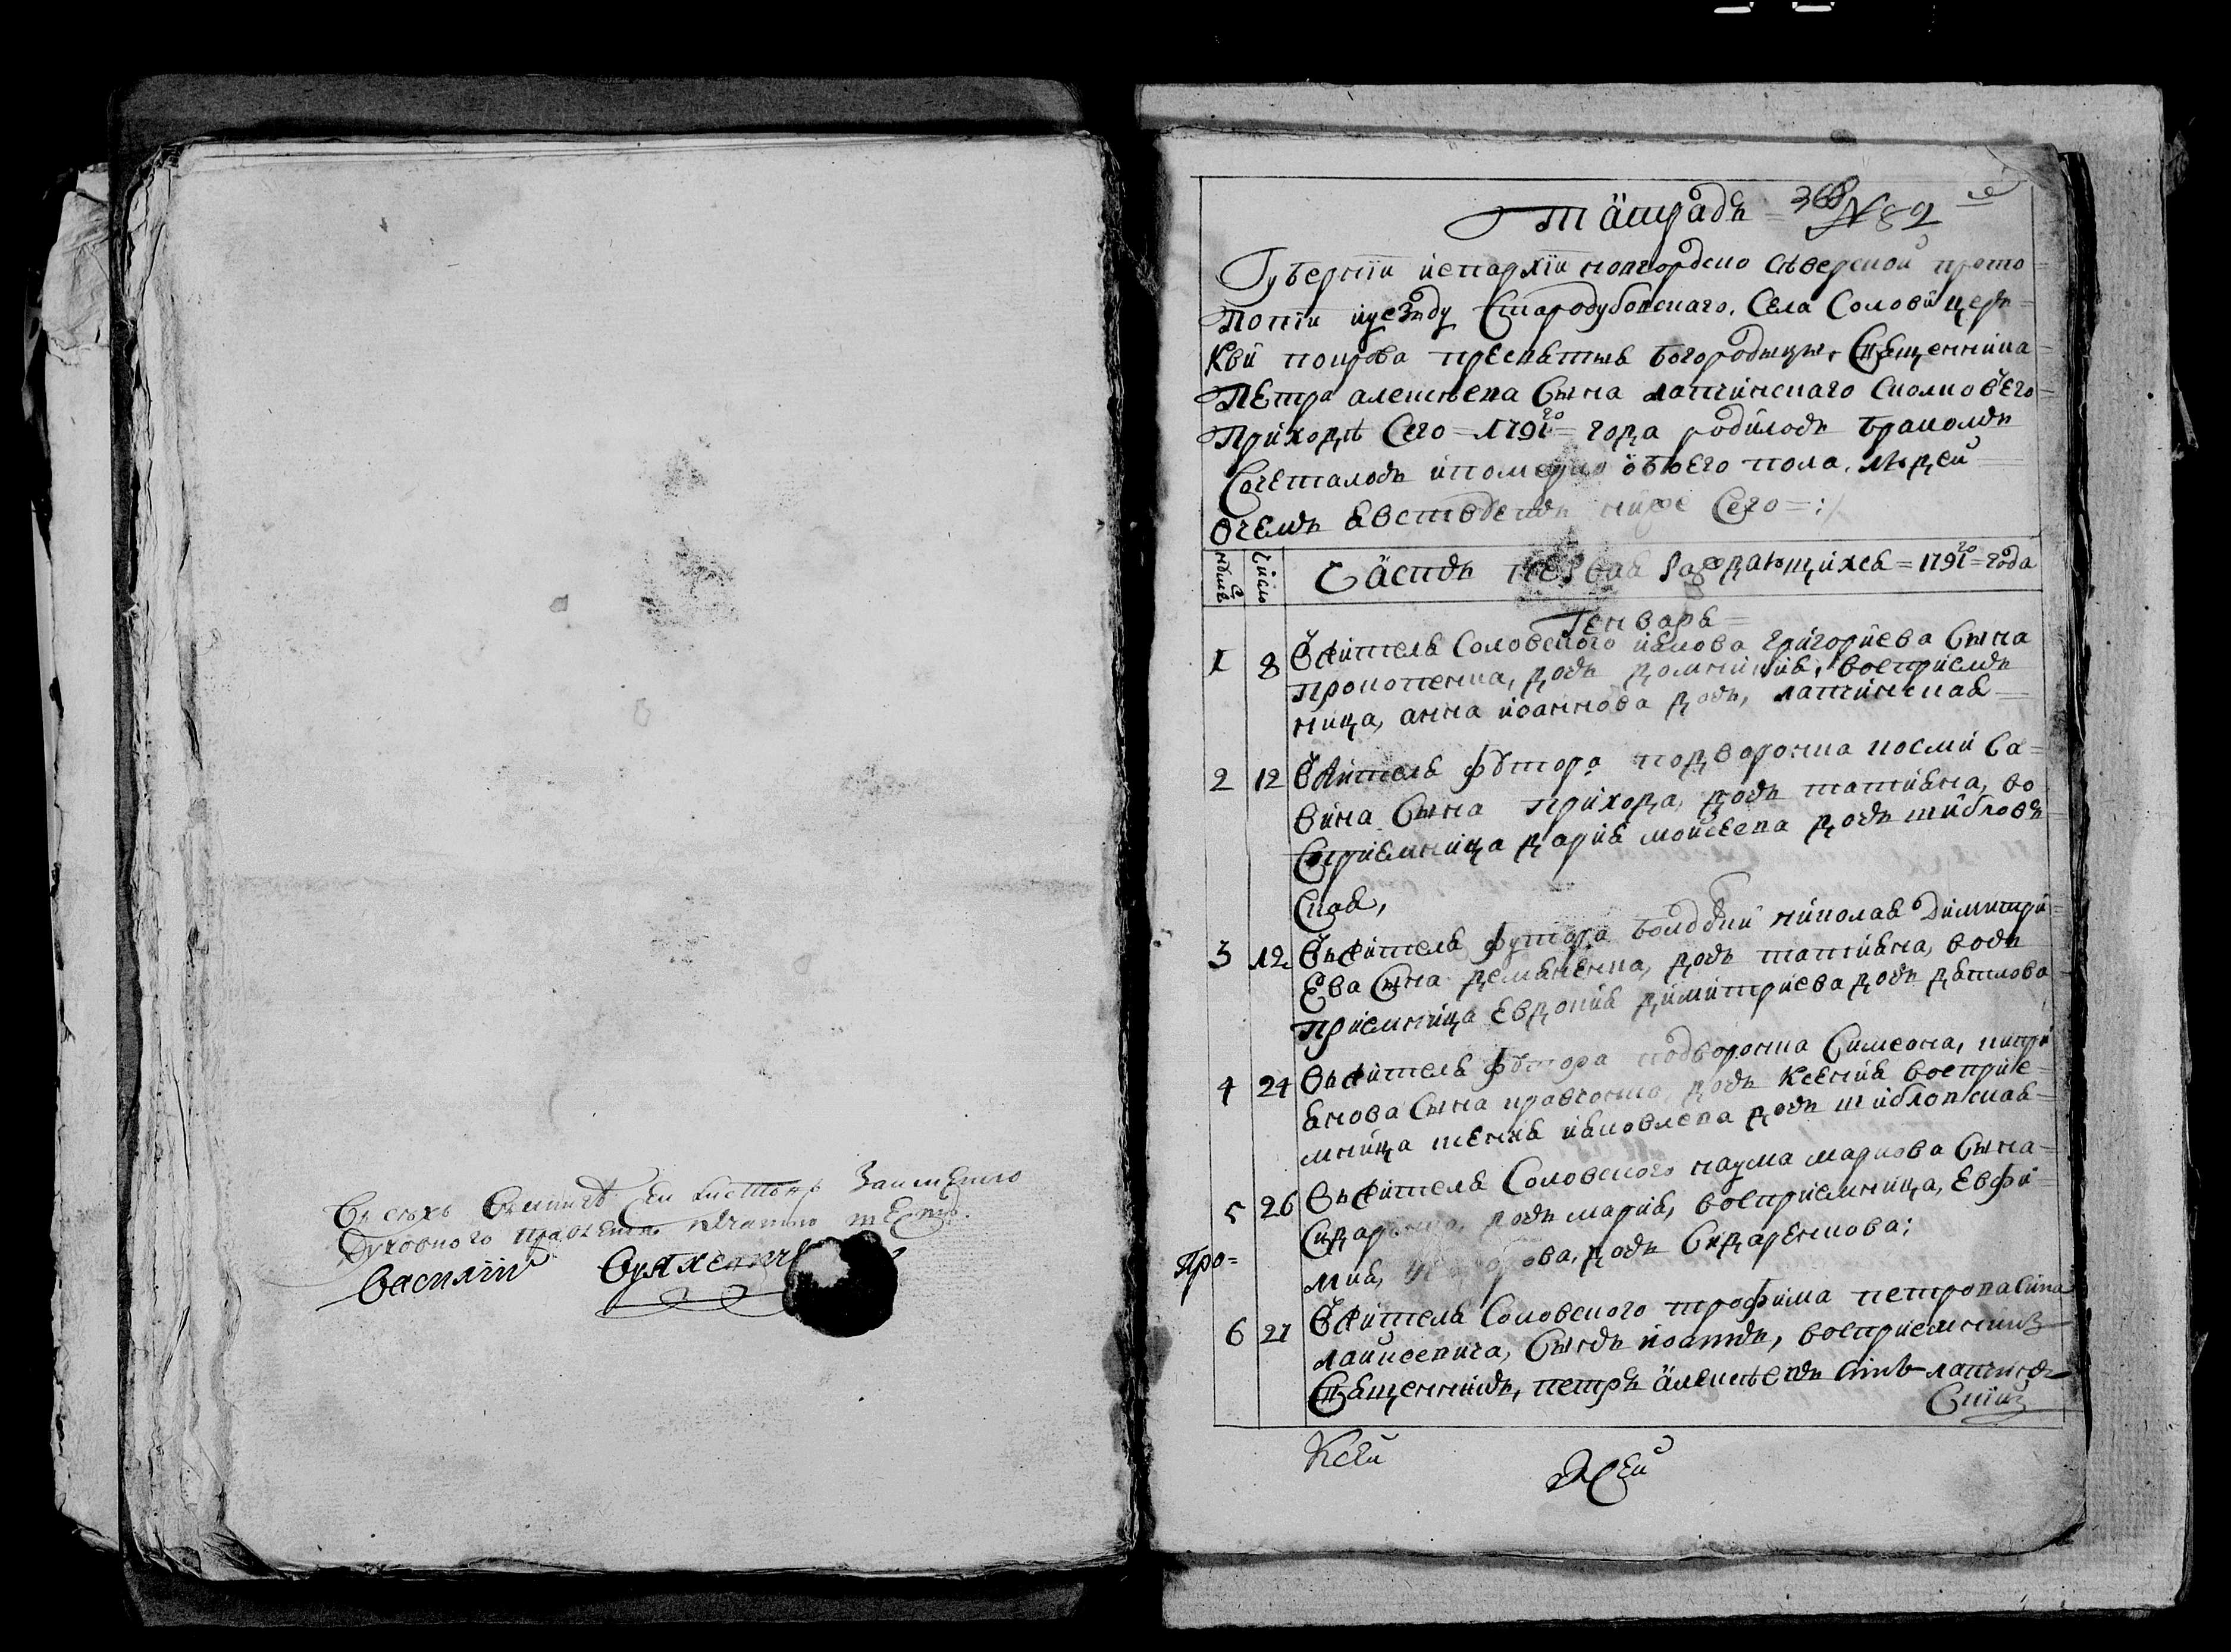 духовного правления печатью
Василій
Тäтрадь = 368 № 82
Губерніи иепархіи новгордско Сѣверской прото=
попіи иуезъду Стародубовскаго, Села Соловй цере=
Квй покрова пресвятыя богородицы, Священника=
Петра алексѣева Сына лапчинскаго Сколко въ его=
Приходѣ Сего=1791го=года родилось бракомъ
Сочеталось ипомерло обоего пола, людей
очемъ явствуетъ ниже Сего=:/
Число
Чäсть первая раждающихся=1791го=года
Генваря=
1 8 Ужителя Соловского якова григориева Сына
прокопенка, дочь домникия, восприемъ
ница, анна иоаннова дочь, лапчинская=
2 12 Ужителя футора подворочка Са=
вина Сына Прихода, дочь татияна, во
Сприемница дария мойсеева дочь шибловъ=
Ская,
3 12 Ужителя футора николая Димитри=
Ева Сына демяненка, дочь татияна, восъ
приемница Евдокия димитриева дочь дятлова
4 24 Ужителя футора подворочка Симеона, кипри
янова Сына кравченка, дочь Ксения восприе=
мница яковлева дочь шибловская=
5 26 Ужителя Соловского наума маркова Сына=
дочь мария, восприемница, Евфи=
мия, дочь Сидаренкова;
Про=
6 27 Ужителя Соловского трофима петрова Сина
Сынъ иоаннъ, восприемникъ
Священникъ, петръ äлексѣевъ Синъ лапчинъ=
Скій
Ксей
Ксей